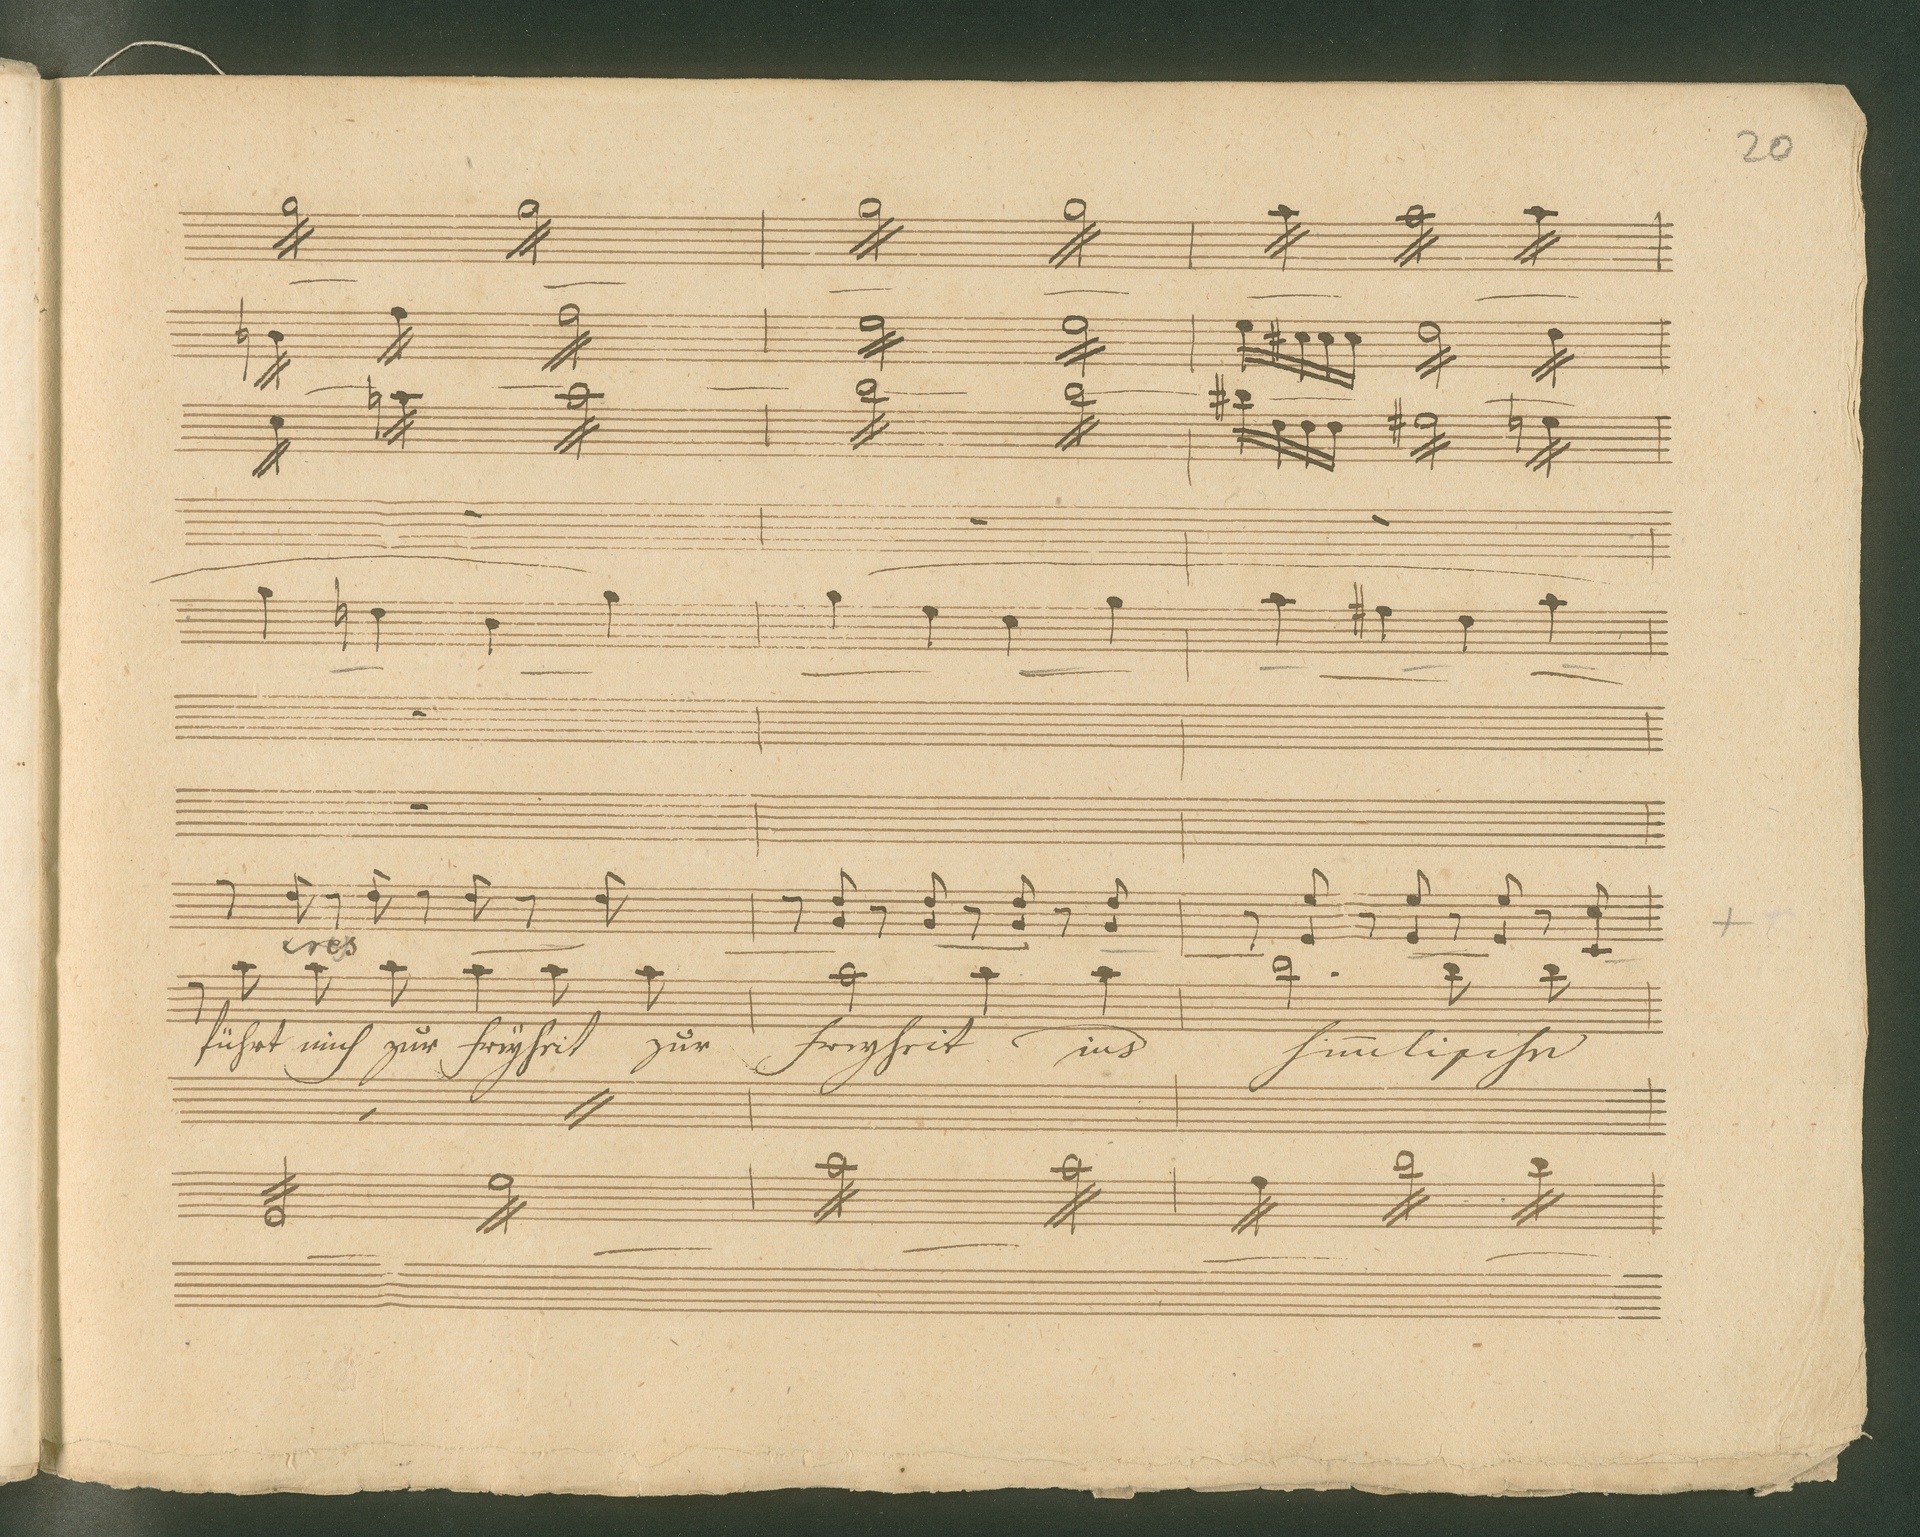 20
cres
führt mich zur Freyheit zur Freyheit ins himlische